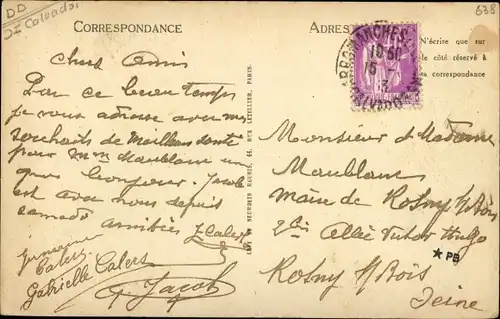 DD
Calvados
638
CORRESPONDANCE
Chers Amis
Par ce beau temps
je vous adresse avec mes
souhaits de Meilleure santé
pour Mme Maublanc un
gros bonjour. Jacob
est avec nous depuis
samedi
amitiés J. Calers
Germaine
Calers
Gabrielle Calers
G. Jacob
RUE LETELLIER, PARIS
ADRES
N'écrire que sur
le côté réservé à
la correspondance
ARROMANCHES
CALVADOS
Monsieur et Madame
Maublanc
Maire de Rosny s/Bois
Allée Victor Hugo
PB
Rosny s/Bois
Seine